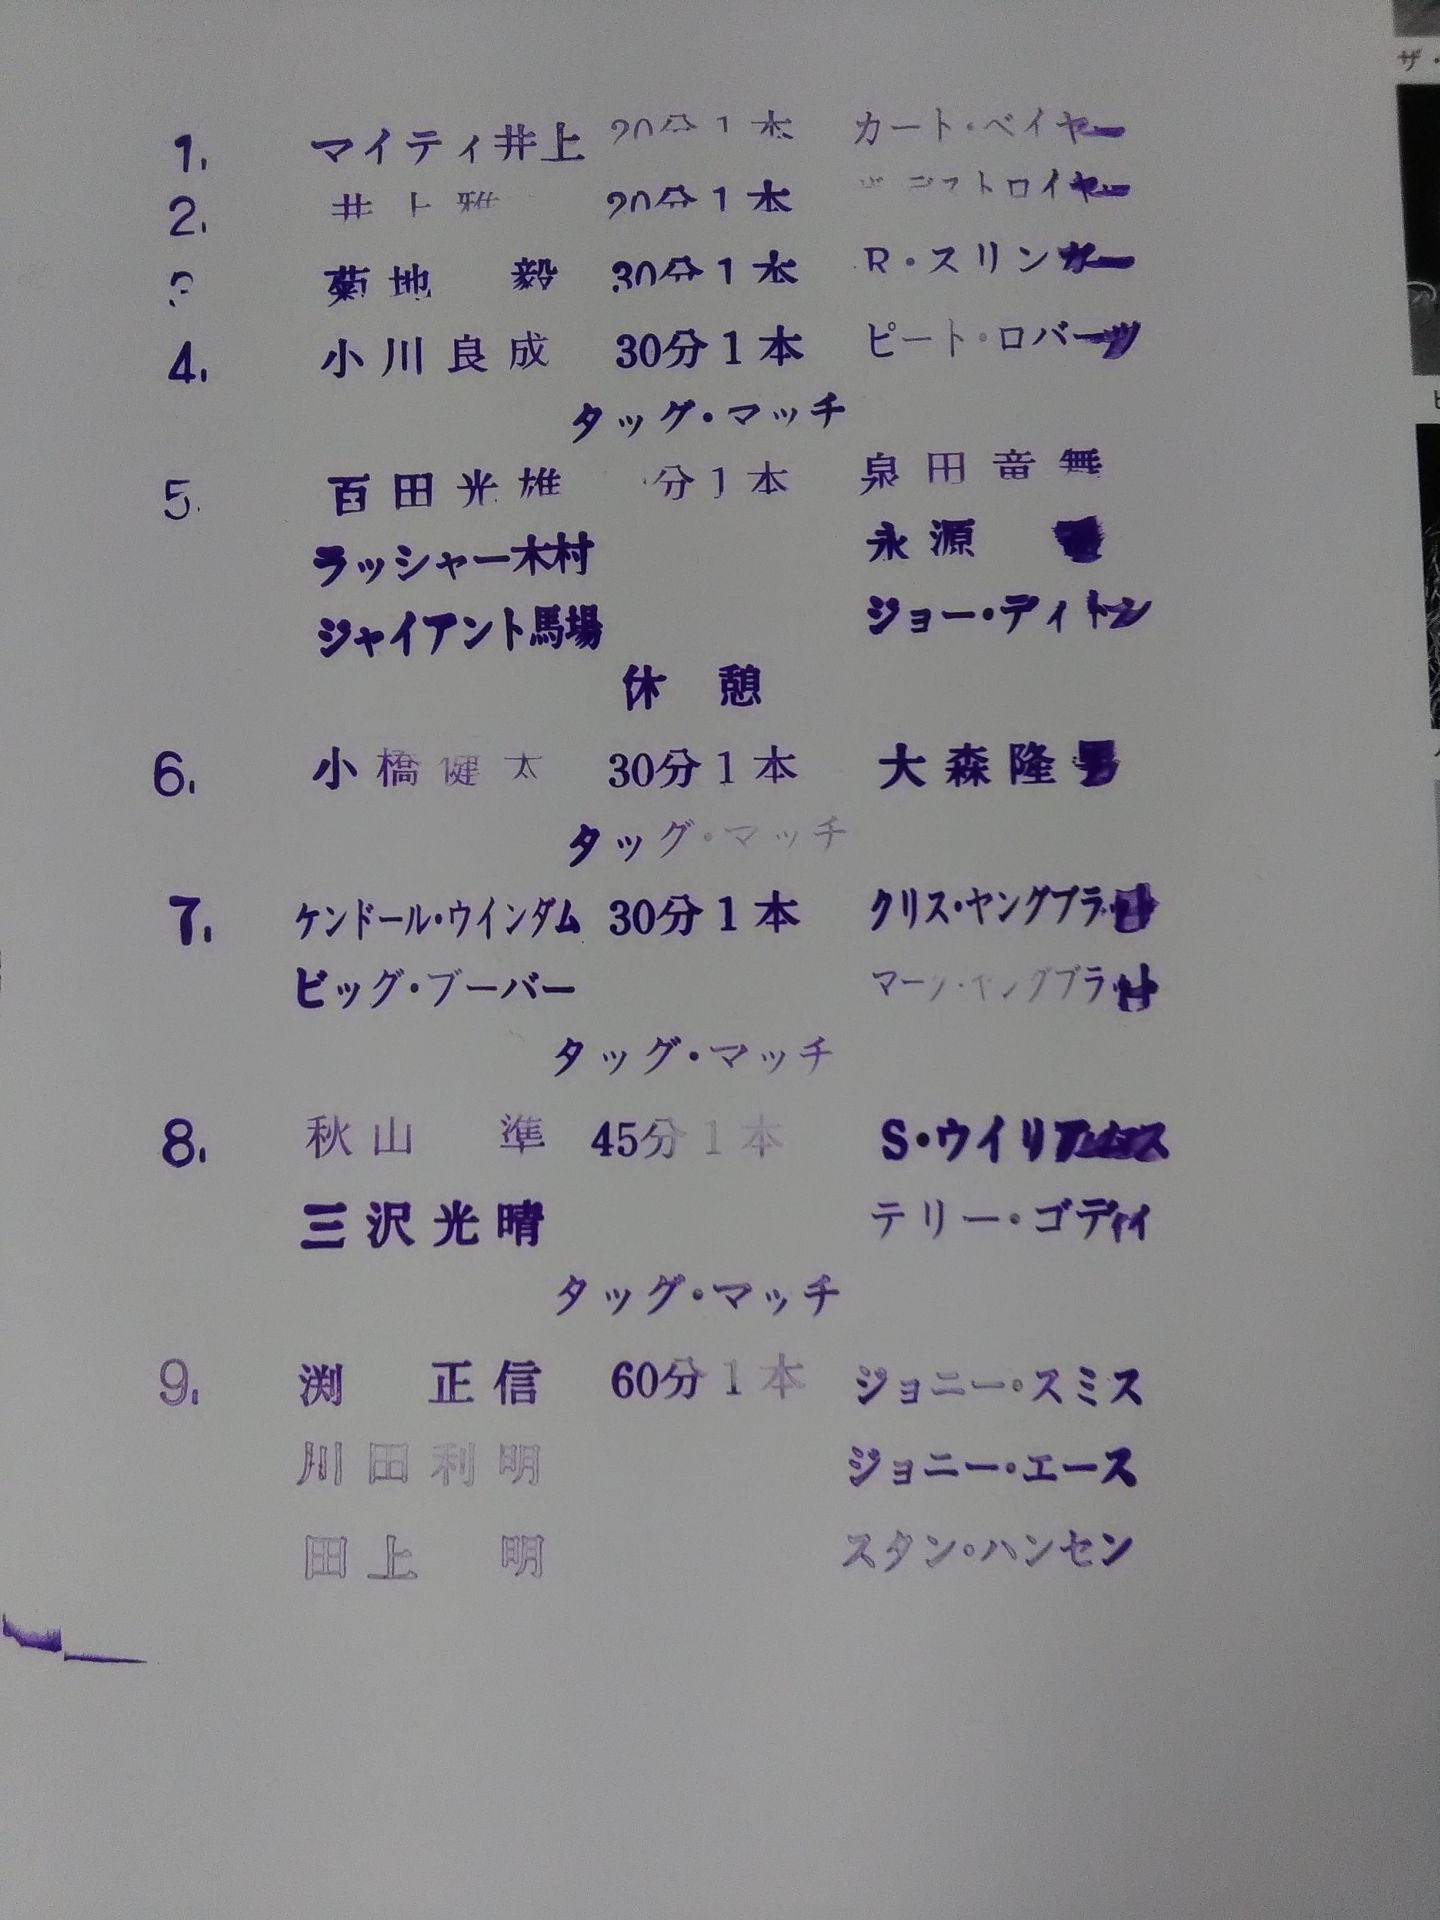 1. マイティ井上 20分1本 カート・ベイヤー
2. 井上雅 20分1本 ストロイヤー
菊地 毅 30分1本 R・スリンガー
4. 小川良成 30分1本 ピート・ロバーツ
タッグ・マッチ
5. 百田光雄 分1本 泉田竜舞
ラッシャー木村 永源
ジャイアント馬場 ジョー・ディトン
休 憩
6. 小橋健太 30分1本 大森隆
タッグ・マッチ
7. ケンドール・ウインダム 30分1本 クリス・ヤングブラ
ビッグ・ブーバー マーク・ヤングブラ
タッグ・マッチ
8. 秋山 準 45分1本 S・ウイリアムス
三沢光晴 テリー・ゴディ
タッグ・マッチ
9. 渕 正信 60分1本 ジョニー・スミス
川田利明 ジョニー・エース
田上 明 スタン・ハンセン